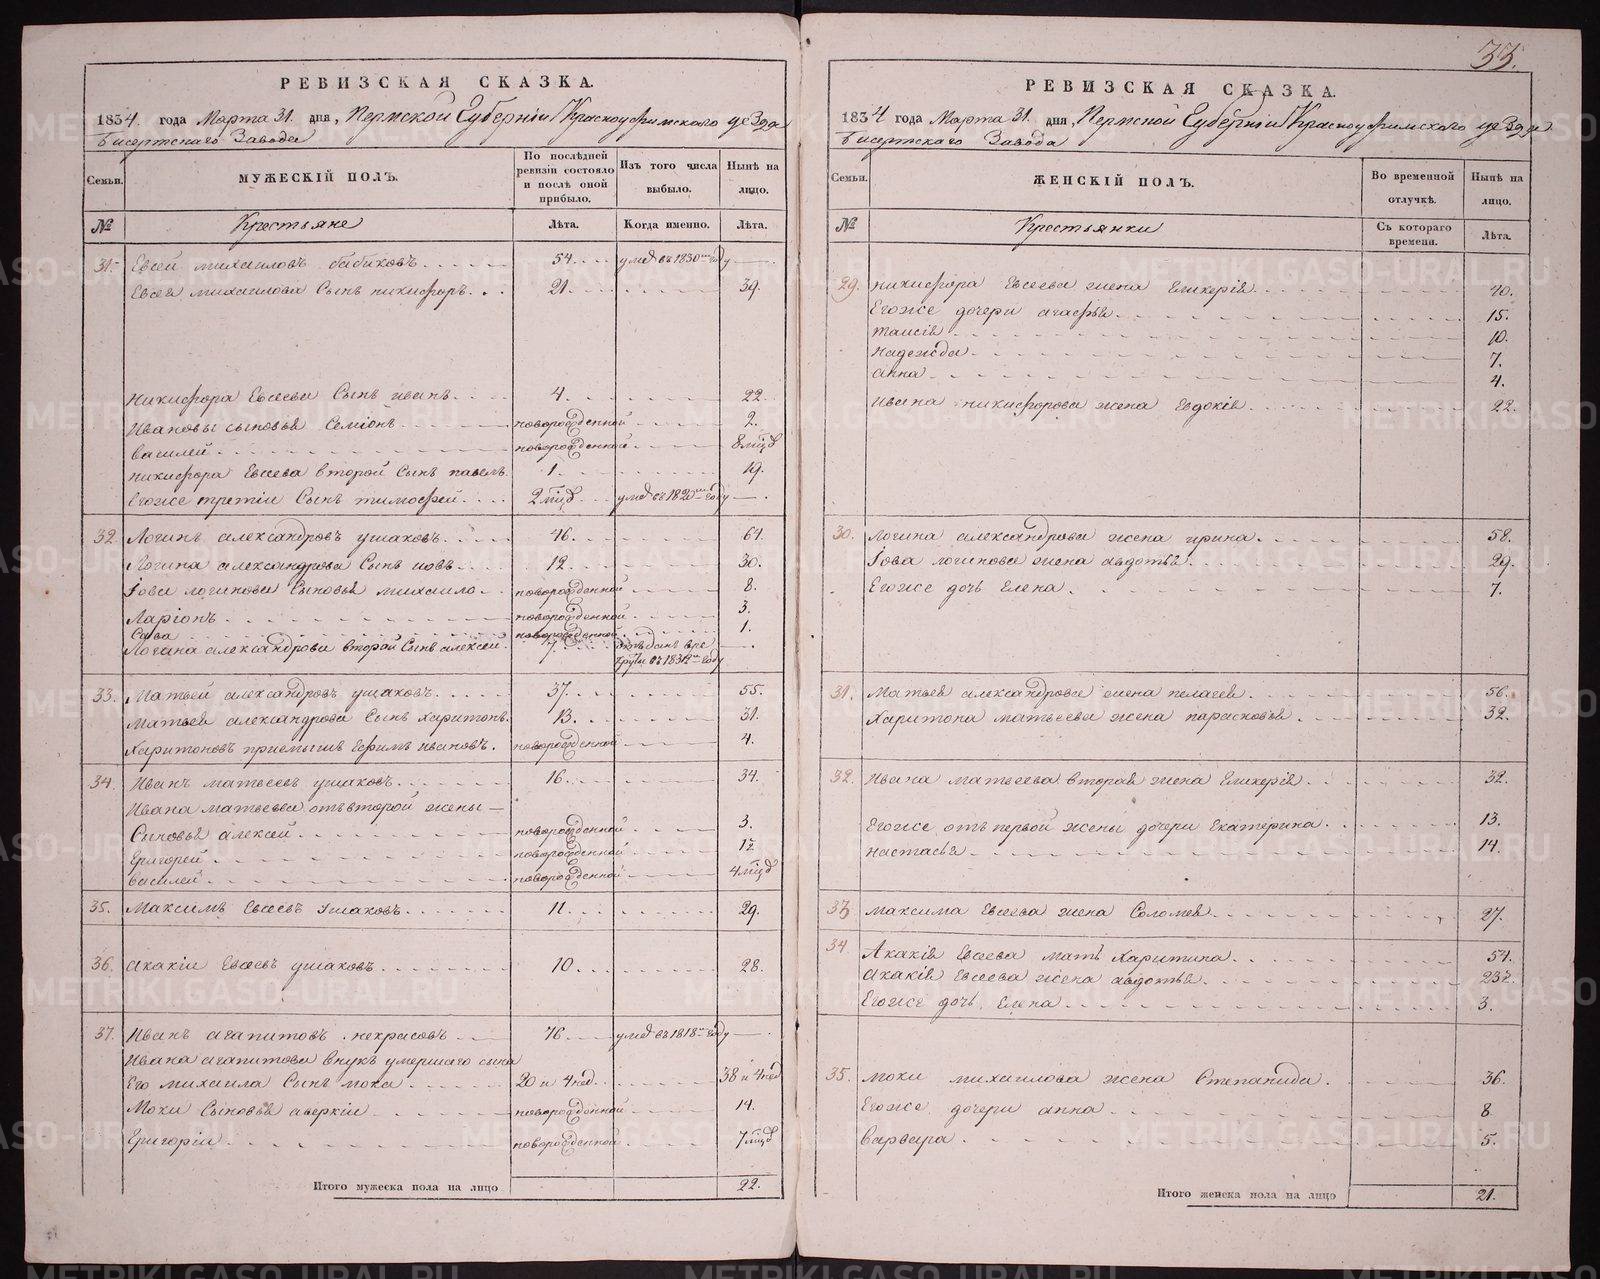 РЕВИЗСКАЯ СКАЗКА.
1834 года Марта 31. дня, Пермской Губерніи Красноуфимскаго уезда
Бисертскаго Завода
Семьи.
МУЖЕСКІЙ ПОЛЪ.
По послѣдней ревизіи состояло и послѣ оной прибыло.
Изъ того числа выбыло.
Нынѣ на лицо.
№ Крестьяне Лѣта. Когда именно. Лѣта.
31. Евсей михаиловъ бабиковъ 54. умеръ въ 1830 году
Евсея михаилова Сынъ никифоръ 21. 39.
Никифора Евсеева Сынъ иванъ 4. 22
Ивановы сыновья Семіонъ новорожденной 2.
василей новорожденной 8 мцъ
никифора Евсеева второй Сынъ павелъ 1. 19.
Егоже третіи Сынъ тимофей 2 мцъ умеръ въ 1820 году
32. Логинъ александровъ ушаковъ 46. 64.
Логина александрова Сынъ иовъ 12. 30.
Іова логинова Сыновья михаило новорожденной 8.
Ларіонъ новорожденной 3.
Сава новорожденной 1.
Логина александрова второй Сынъ алексей 7. отданъ в рекруты въ 1832 году
33. Матвей александровъ ушаковъ 37. 55.
Матвея александрова Сынъ харитонъ 13. 31.
Харитоновъ приемышъ Ефимъ ивановъ новорожденной 4.
34. Иванъ матвеевъ ушаковъ 16. 34.
Ивана матвеева отъ второй жены
Сыновья алексей новорожденной 3.
Григорей новорожденной 1½
василей новорожденной 4 мцъ
35. Максимъ Евсеевъ Ушаковъ 11. 29.
36. акакіи Евсеевъ ушаковъ 10. 28.
37. Иванъ агапитовъ некрасовъ 76 умеръ въ 1818 году
Ивана агапитова внукъ умершаго сына
Его михаила Сынъ мока 20 и 4 нед. 38 и 4 нед
Моки Сыновья аверкіи новорожденной 14.
Григоріи новорожденной 7 мцъ
Итого мужеска пола на лицо 22.
33.
РЕВИЗСКАЯ СКАЗКА.
1834 года Марта 31. дня, Пермской Губерніи Красноуфимскаго уезда
Бисертскаго Завода
Семьи.
ЖЕНСКІЙ ПОЛЪ.
Во временной отлучкѣ.
Нынѣ на лицо.
№ Крестьянки Съ котораго времени. Лѣта.
29. никифора Евсеева жена Гликерія 40.
Егоже дочери агафья 15.
таисія 10.
надежда 7.
анна 4.
Ивана никифорова жена Евдокія 22.
30. Логина александрова жена ирина 58.
Іова логинова жена авдотья 29.
Егоже дочь Елена 7.
31. Матвея александрова жена пелагея 56.
Харитона матвеева жена парасковья 32.
32. Ивана матвеева вторая жена Гликерія 32.
Егоже отъ первой жены дочери Екатерина 13.
настасья 14.
33. максима Евсеева жена Соломея 27.
34. Акакія Евсеева мать Харитина 54.
акакія Евсеева жена авдотья
Егоже дочь Елена 3.
35. моки михаилова жена Степанида 36.
Егоже дочери анна 8
варвара 5.
Итого женска пола на лицо 21.
METRIKI.GASO-URAL.RU